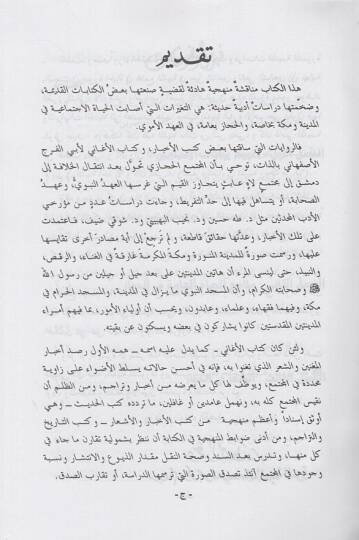 تقديم
هذا الكتاب مناقشة منهجية هادئة لقضية صنعتها بعض الكتابات القديمة،
وضخّمتها دراسات أدبية حديثة: هي التغيرات التي أصابت الحياة الاجتماعية في
المدينة ومكة بخاصة، والحجاز بعامة، في العهد الأموي.
فالروايات التي ساقتها بعض كتب الأخبار، وكتاب الأغاني لأبي الفرج
الأصفهاني بالذات، توحي بأن المجتمع الحجازي تحوّل بعد انتقال الخلافة إلى
دمشق إلى مجتمع لاهٍ عابثٍ يتجاوز القيم التي غرسها العهد النبويّ، وعهدُ
الصحابة، أو يتساهل فيها إلى حدّ التفريط، وجاءت دراسات عددٍ من مؤرخي
الأدب المحدثين مثل د. طه حسين ود. نجيب البهبيتي ود. شوقي ضيف، فاعتمدت
على تلك الأخبار، وعدّتها حقائق قاطعة، ولم تَرجع إلى أية مصادرَ أخرى تقايسها
عليها، ورسمت صورةً للمدينة المنورة ومكة المكرمة غارقةً في الغناء، والرقص،
والنبيذ، حتى لينسى المرء أن هاتين المدينتين على بعد جيل أو جيلين من رسول الله
ﷺ وصحابته الكرام، وأن المسجد النبوي ما يزال في المدينة، والمسجد الحرام في
مكة، وفيهما فقهاء، وعلماء، وعابدون، ويحسب أن أولياء الأمور، بما فيهم أمراء
المدينتين المقدستين كانوا يشاركون في بعضه ويسكتون عن بقيته.
ولئن كان كتاب الأغاني ـ كما يدل عليه اسمه ـ همه الأول رصد أخبار
المغنين والشعر الذي تغنوا به، فإنه في أحسن حالاته يسلط الأضواء على زاوية
محددة في المجتمع، ويوظّف لها كل ما يعرضه من أخبار وتراجم، ومن الظلم أن
نقيس المجتمع كله به، ونهمل عامدين أو غافلين، ما تردده كتب الحديث ـ وهي
أوثق إسناداً وأعظم منهجية من كتب الأخبار والأشعار ـ وكتب التاريخ
والتراجم، ومن أدنى ضوابط المنهجية في الكتابة أن ننظر بشمولية تقارن ما جاء في
كل منها، وتدرس بعد السند وصحة النقل مقدار الذيوع والانتشار ونسبة
وجودها في المجتمع آنذك تصدق الصورة التي ترسمها الدراسة، أو تقارب الصدق.
- ج -